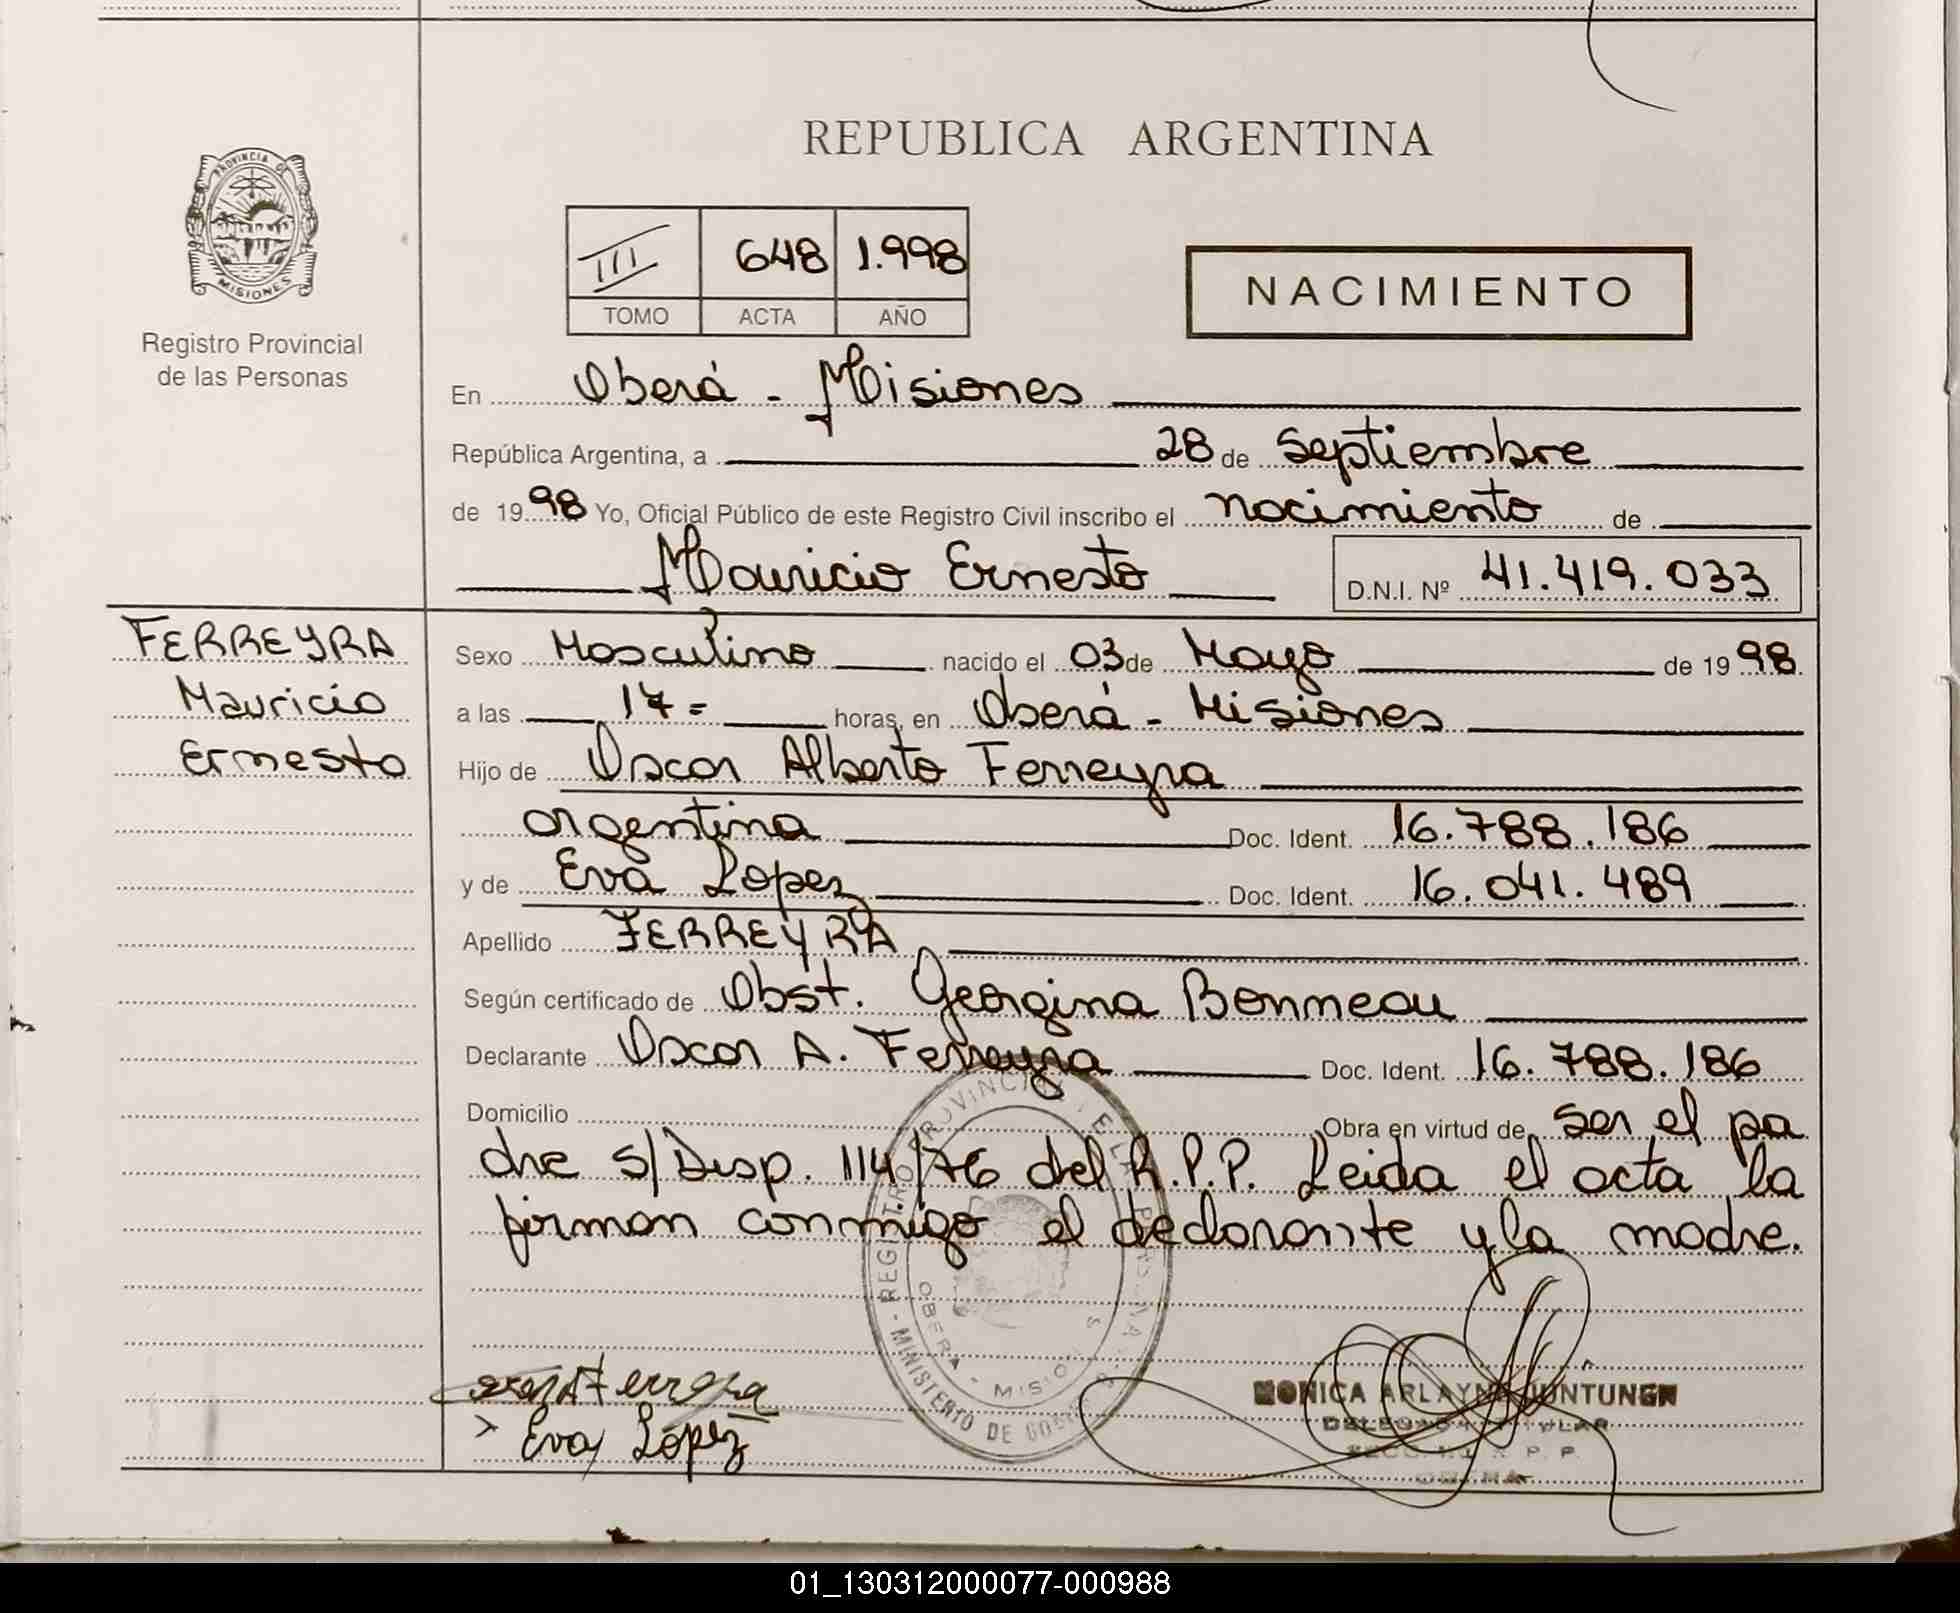 REPUBLICA ARGENTINA
PROVINCIA DE
MISIONES
Registro Provincial
de las Personas
III 648 1.998
TOMO ACTA AÑO
NACIMIENTO
En Oberá - Misiones
República Argentina, a 28 de Septiembre
de 1998 Yo, Oficial Público de este Registro Civil inscribo el nacimiento de
Mauricio Ernesto D.N.I. Nº 41.419.033
FERREYRA
Mauricio
Ernesto
Sexo Masculino nacido el 03 de Mayo de 1998
a las 17= horas, en Oberá - Misiones
Hijo de Oscar Alberto Ferreyra
argentina Doc. Ident. 16.788.186
y de Eva Lopez Doc. Ident. 16.041.489
Apellido FERREYRA
Según certificado de Obst. Georgina Bonneau
Declarante Oscar A. Ferreyra Doc. Ident. 16.788.186
Domicilio Obra en virtud de ser el pa
dre s/Disp. 114/76 del R.P.P. Leida el acta la
firman conmigo el declarante y la madre.
REGISTRO PROVINCIAL DE LAS PERSONAS
OBERA - MISIONES
MINISTERIO DE GOB
Eva López
MONICA ARLAYN
DELEGADA TITULAR
R. P. P.
OBERA
01_130312000077-000988